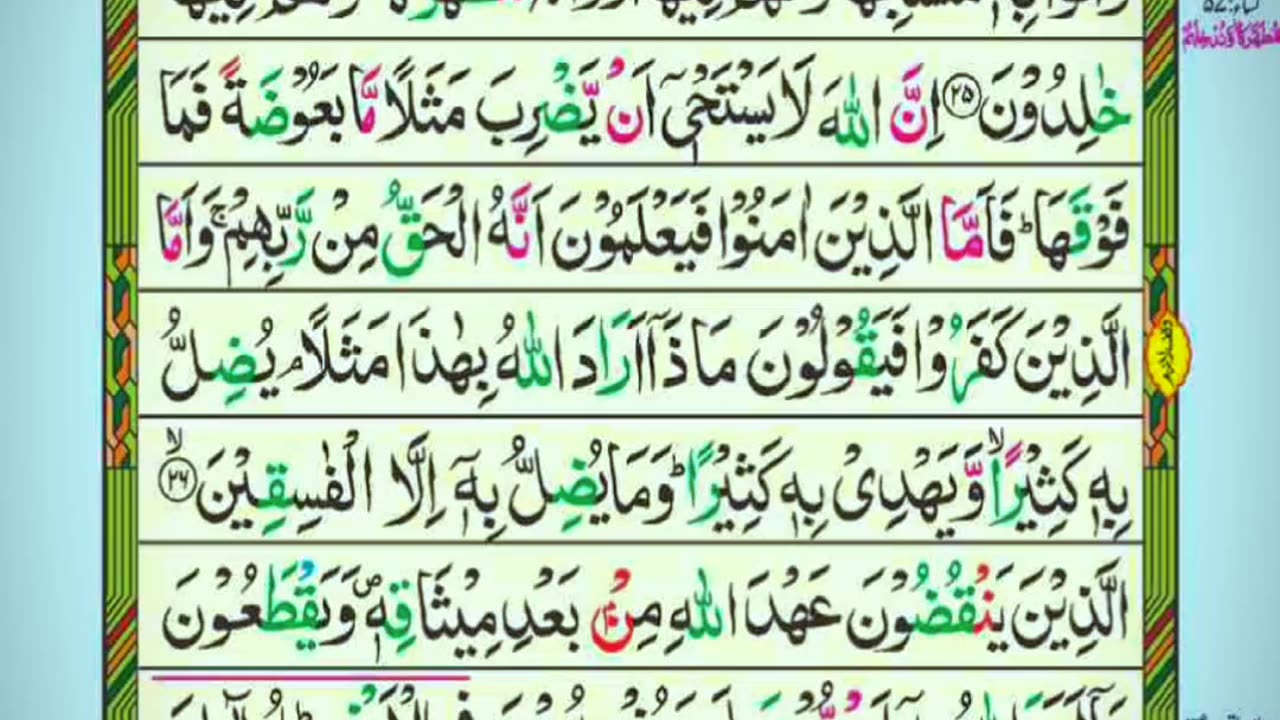 خٰلِدُوْنَ ﴿۲۵﴾ اِنَّ اللّٰهَ لَا يَسْتَحْيٖۤ اَنْ يَّضْرِبَ مَثَلًا مَّا بَعُوْضَةً فَمَا
فَوْقَهَا ؕ فَاَمَّا الَّذِيْنَ اٰمَنُوْا فَيَعْلَمُوْنَ اَنَّهُ الْحَقُّ مِنْ رَّبِّهِمْ ۚ وَاَمَّا
الَّذِيْنَ كَفَرُوْا فَيَقُوْلُوْنَ مَاذَاۤ اَرَادَ اللّٰهُ بِهٰذَا مَثَلًا ۘ يُضِلُّ
بِهٖ كَثِيْرًا ۙ وَّيَهْدِيْ بِهٖ كَثِيْرًا ؕ وَمَا يُضِلُّ بِهٖۤ اِلَّا الْفٰسِقِيْنَ ۙ﴿۲۶﴾
الَّذِيْنَ يَنْقُضُوْنَ عَهْدَ اللّٰهِ مِنْۢ بَعْدِ مِيْثَاقِهٖ ۪ وَيَقْطَعُوْنَ